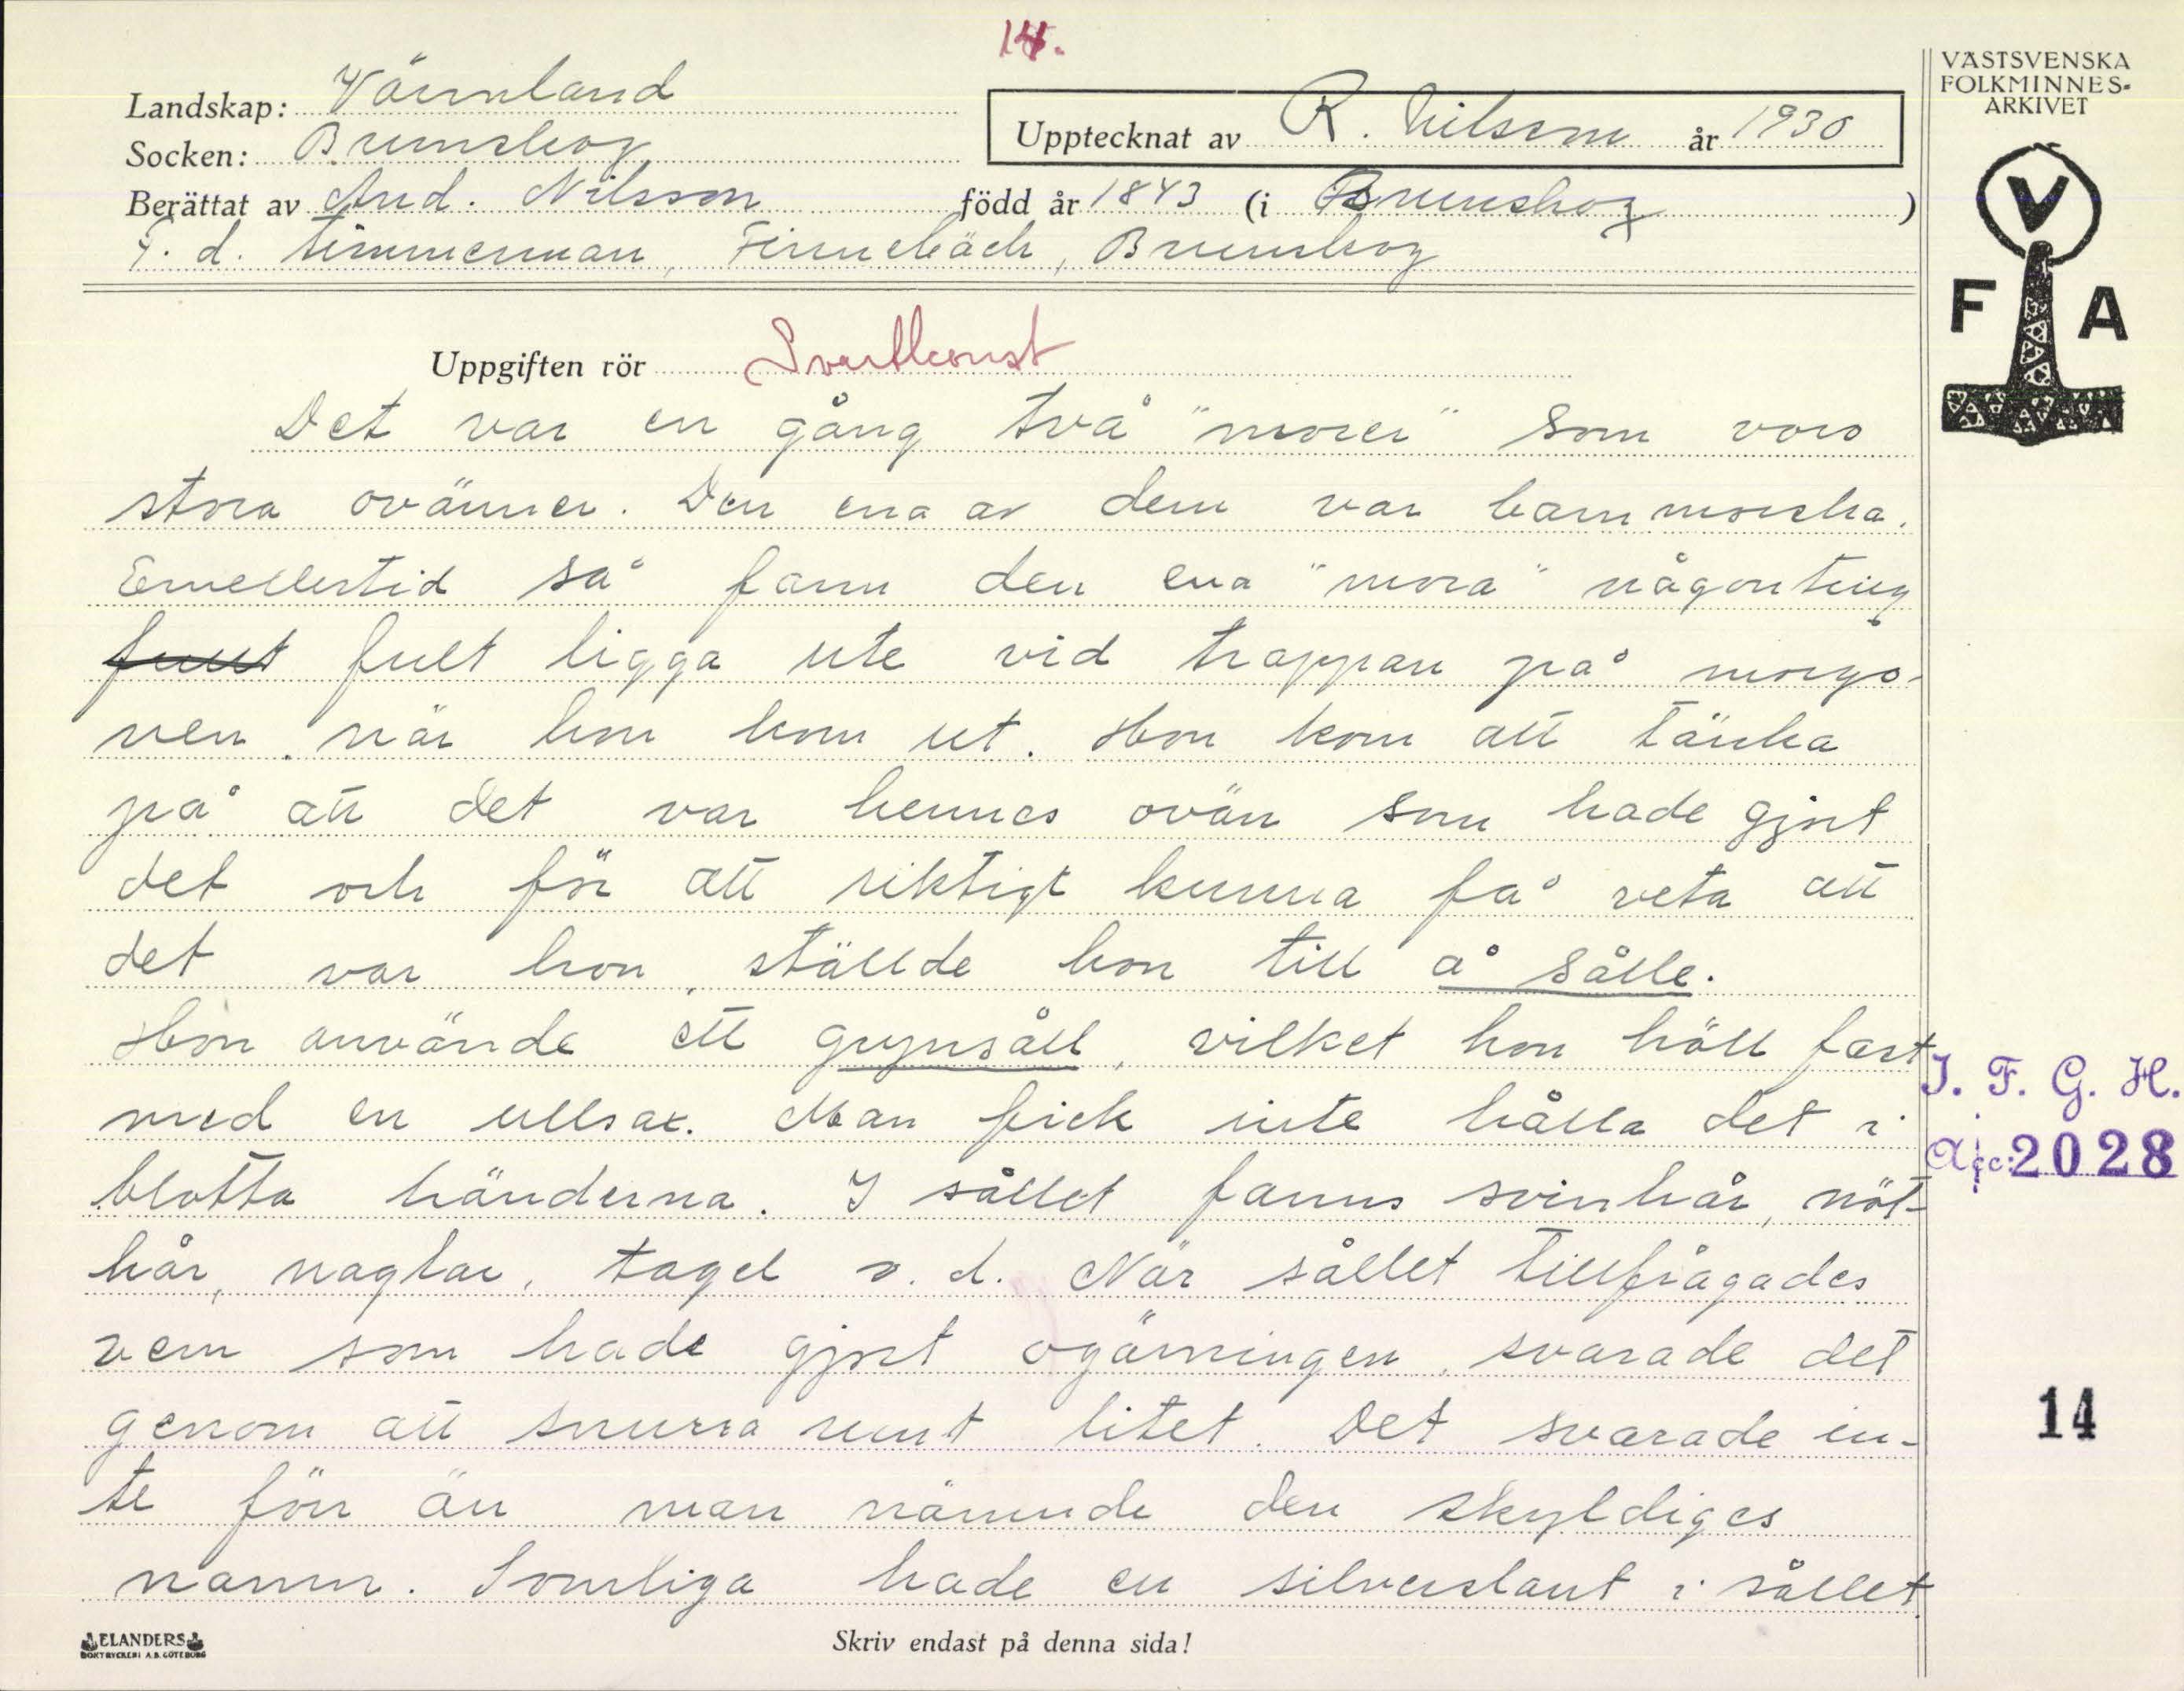 14.
VÄSTSVENSKA
FOLKMINNES-
ARKIVET
Landskap: Värmland
Socken: Brunskog
Upptecknat av R. Nilsson år 1930
Berättat av And. Nilsson född år 1843 (i Brunskog)
F. d. timmerman, Finnebäck, Brunskog
V
F A
Uppgiften rör Svartkonst
Det var en gång två "morer" som voro
stora ovänner. Den ena av dem var barnmorska.
Emellertid så fann den ena "mora" någonting
fult ligga ute vid trappan på morgo-
nen, när hon kom ut. Hon kom att tänka
på att det var hennes ovän som hade gjort
det och för att riktigt kunna få veta att
det var hon, ställde hon till å sålle.
Hon använde ett grynsåll, vilket hon höll fast
med en ullsax. Man fick inte hålla det i
blotta händerna. I sållet fanns svinhår, nöt-
hår, naglar, tagel o. d. När sållet tillfrågades
vem som hade gjort ogärningen, svarade det
genom att snurra runt litet. Det svarade in-
te förr än man nämnde den skyldiges
namn. Somliga hade en silverslant i sållet.
I. F. G. H.
Acc: 2028
14
ELANDERS
BOKTRYCKERI A.B. GÖTEBORG
Skriv endast på denna sida!